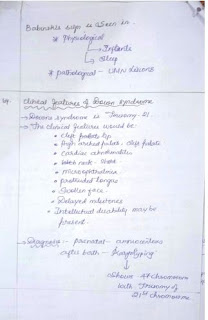 Babinski's sign is seen in.
* Physiological
→ Infants
→ Sleep
* Pathological - UMN lesions
Clinical features of Down syndrome
→ Down's syndrome is Trisomy-21.
→ The clinical features would be:
• cleft palate lip
• high arched palate, cleft palate
• cardiac abnormalities
• webed neck - short
• microphthalmia
• protruded tongue
• Swollen face
• Delayed milestones
• Intellectual disability may be
present.
→ Diagnosis - prenatal - amniocentesis
after birth - Karyotyping
shows 47 chromosome
with Trisomy of
21st chromosome